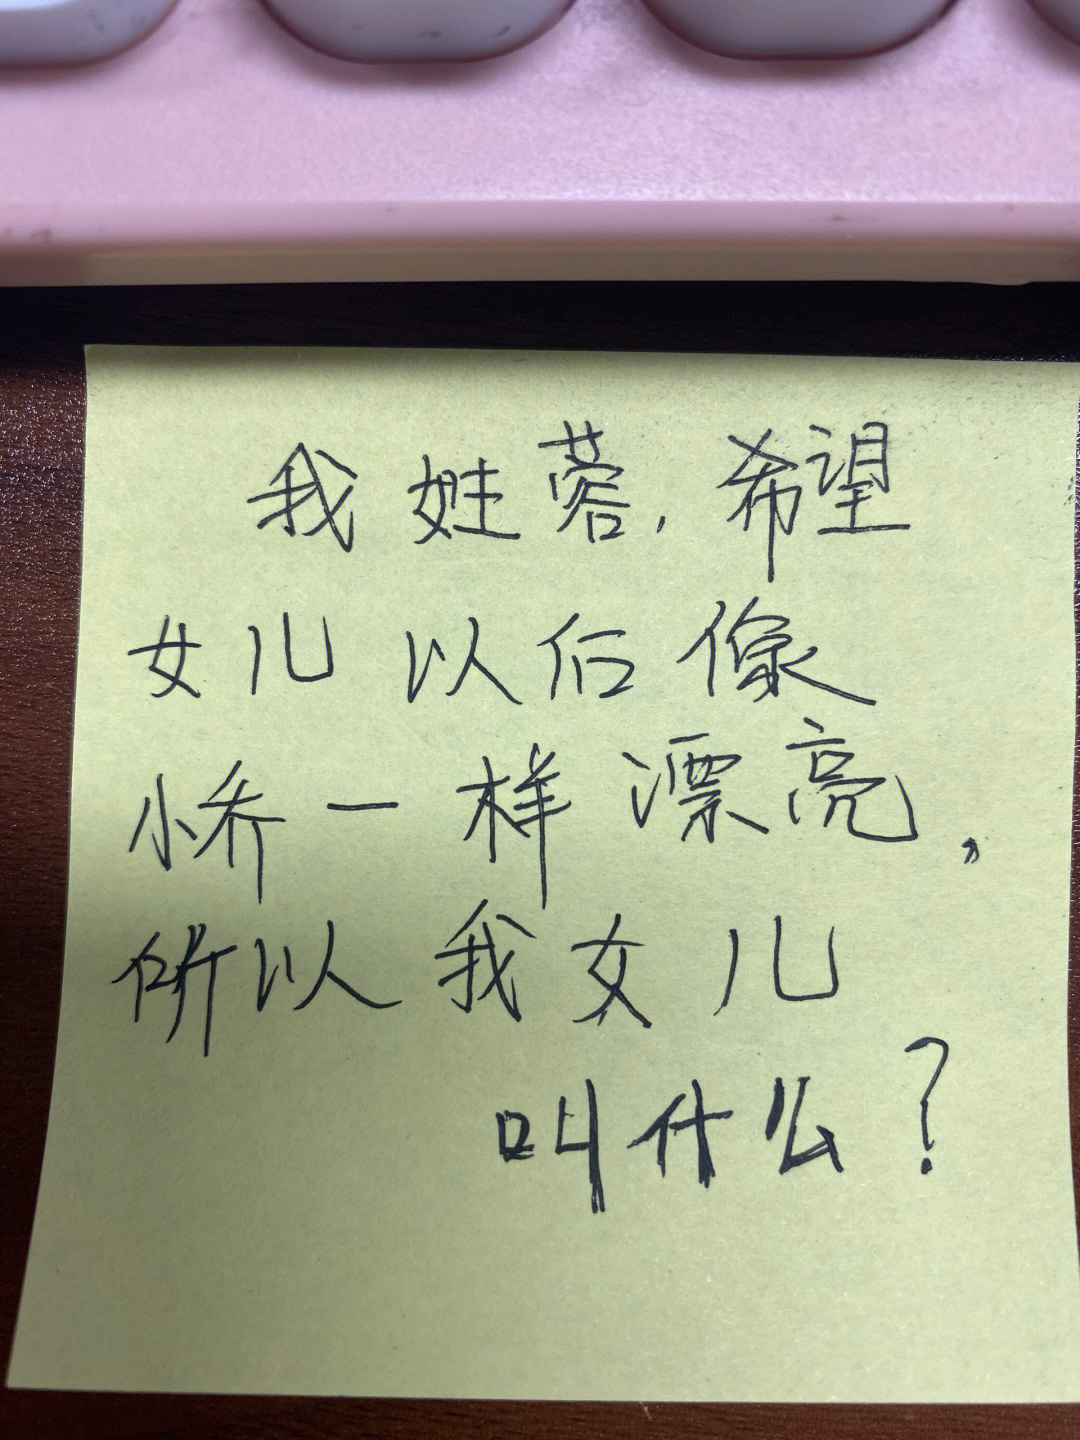 我姓蓉,希望
女儿以后像
小乔一样漂亮,
所以我女儿
叫什么?